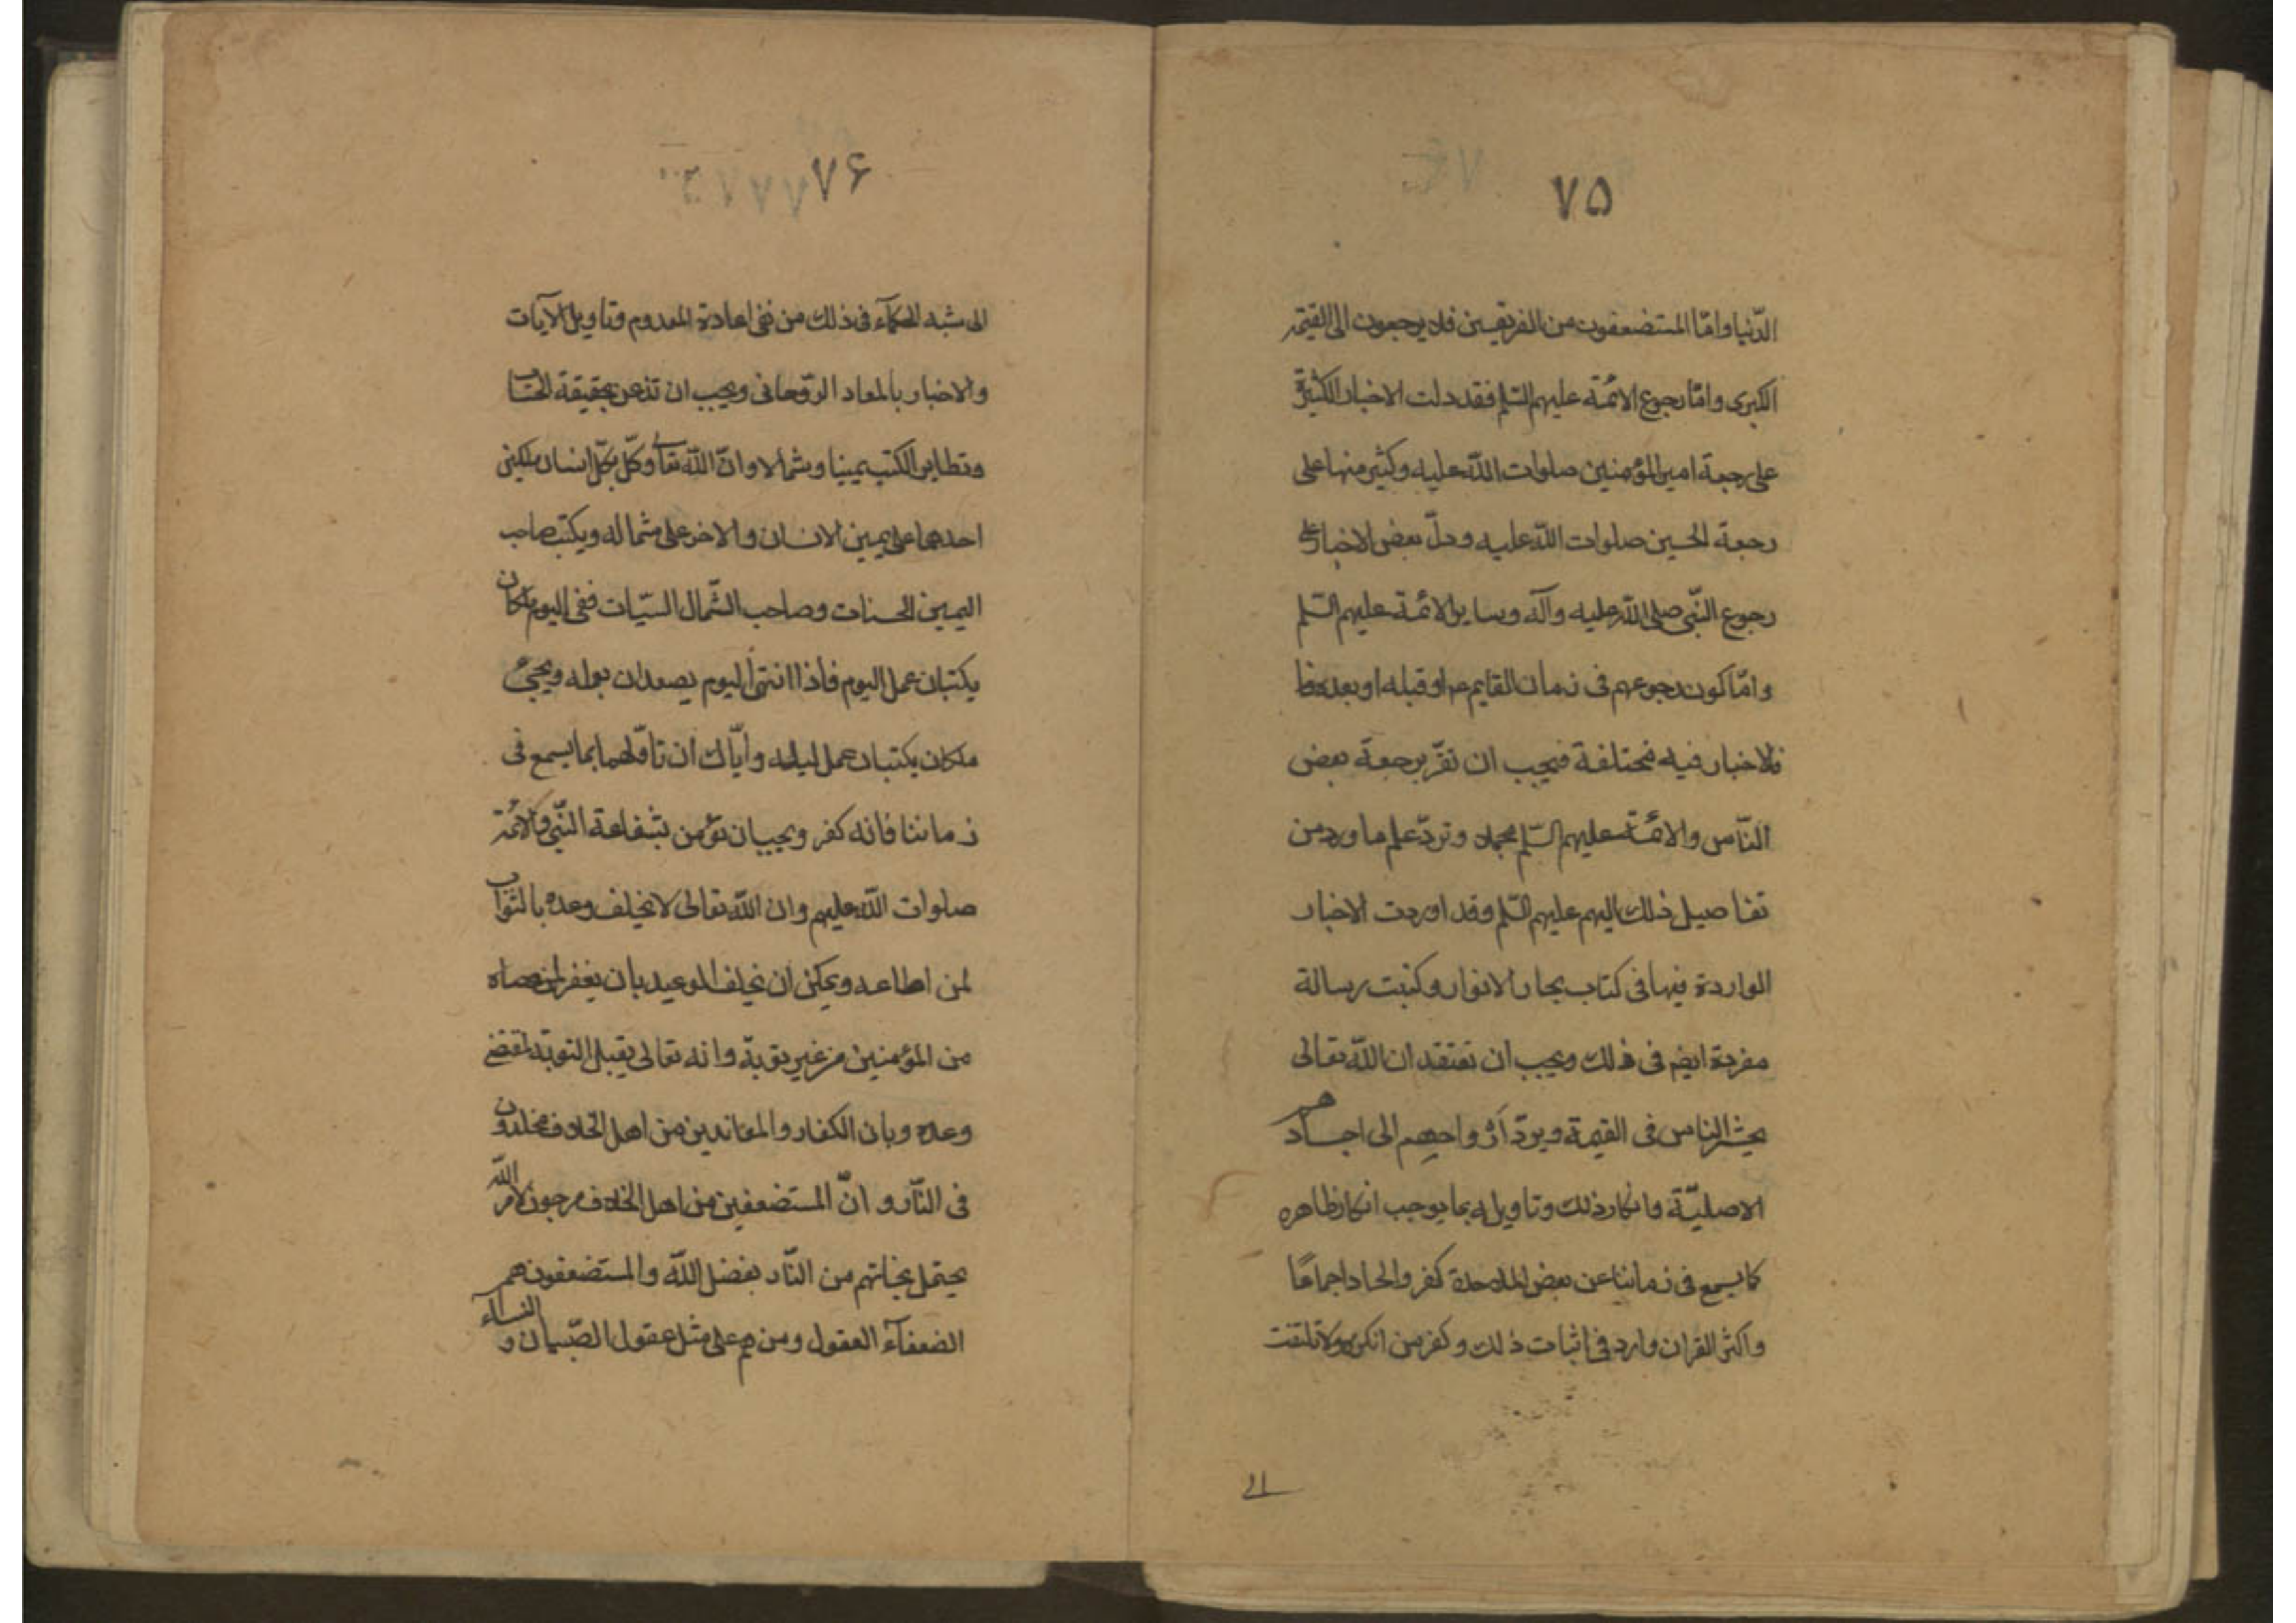 ٧۵
الدّنيا وامّا المستضعفون من الفريقين فلا يرجعون الى القيمة
الكبرى وامّا رجوع الائمّة عليهم السّلم فقد دلت الاخبار الكثيرة
على رجعة امير المؤمنين صلوات اللّه عليه وكثير منها على
رجعة الحسين صلوات اللّه عليه ودلّ بعض الاخبار على
رجوع النّبى صلى اللّه عليه وآله وساير الائمّة عليهم السّلم
وامّا كون رجوعهم فى زمان القايم ع او قبله او بعده
فالاخبار فيه مختلفة فيجب ان تقرّ برجعة بعض
النّاس والائمّة عليهم السّلم مجملا وتردّ علم ما ورد من
تفاصيل ذلك اليهم عليهم السّلم وقد اوردت الاخبار
الواردة فيها فى كتاب بحار الانوار وكتبت رسالة
مفردة ايضم فى ذلك ويجب ان تعتقد ان اللّه تعالى
يحشر الناس فى القيمة ويردّ ارواحهم الى اجسادهم
الاصليّة وانكار ذلك وتاويله بما يوجب انكار ظاهره
كما يسمع فى زماننا عن بعض الملاحدة كفر والحاد اجماعًا
واكثر القران وارد فى اثبات ذلك وكفر من انكره ولا تلتفت
الى
٧۶
الى شبه الحكمآء فى ذلك من نفى اعادة المعدوم وتاويل الآيات
والاخبار بالمعاد الرّوحانى ويجب ان تذعن بحقيقة الحساب
وتطاير الكتب يمينا وشمالا وانّ اللّه تعالى وكّل بكلّ انسان ملكين
احدهما على يمين الانسان والاخر على شماله ويكتب صاحب
اليمين الحسنات وصاحب الشّمال السيّات ففى اليوم ملكان
يكتبان عمل اليوم فاذا انتهى اليوم يصعدان بعمله ويجئ
ملكان يكتبان عمل ليله وايّاك ان تاوّلهما بما يسمع فى
زماننا فانه كفر ويجب ان تؤمن بشفاعة النّبى والائمّة
صلوات اللّه عليهم وان اللّه تعالى لا يخلف وعده بالثواب
لمن اطاعه ويمكن ان يخلف الوعيد بان يغفر لمن عصاه
من المؤمنين من غير توبة وانه تعالى يقبل التوبة بمقتضى
وعده وبان الكفار والمعاندين من اهل الخلاف مخلدون
فى النّار وانّ المستضعفين من اهل الخلاف مرجون لامر اللّه
يحتمل نجاتهم من النّار بفضل اللّه والمستضعفون هم
الضعفآء العقول ومن هم على مثل عقول الصّبيان والنسآء